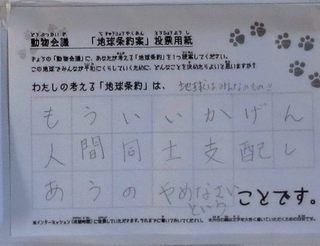 動物会議 「地球条約案」投票用紙
きょうの「動物会議」に、あなたが考える「地球条約」を1つ提案してください。
この地球でみんなが平和にくらしていくために、どんなことを決めたらよいと思いますか?
わたしの考える「地球条約」は、地球はみんなのもの!!
もういいかげん
人間同士支配し
あうのやめなさい
という
ことです。